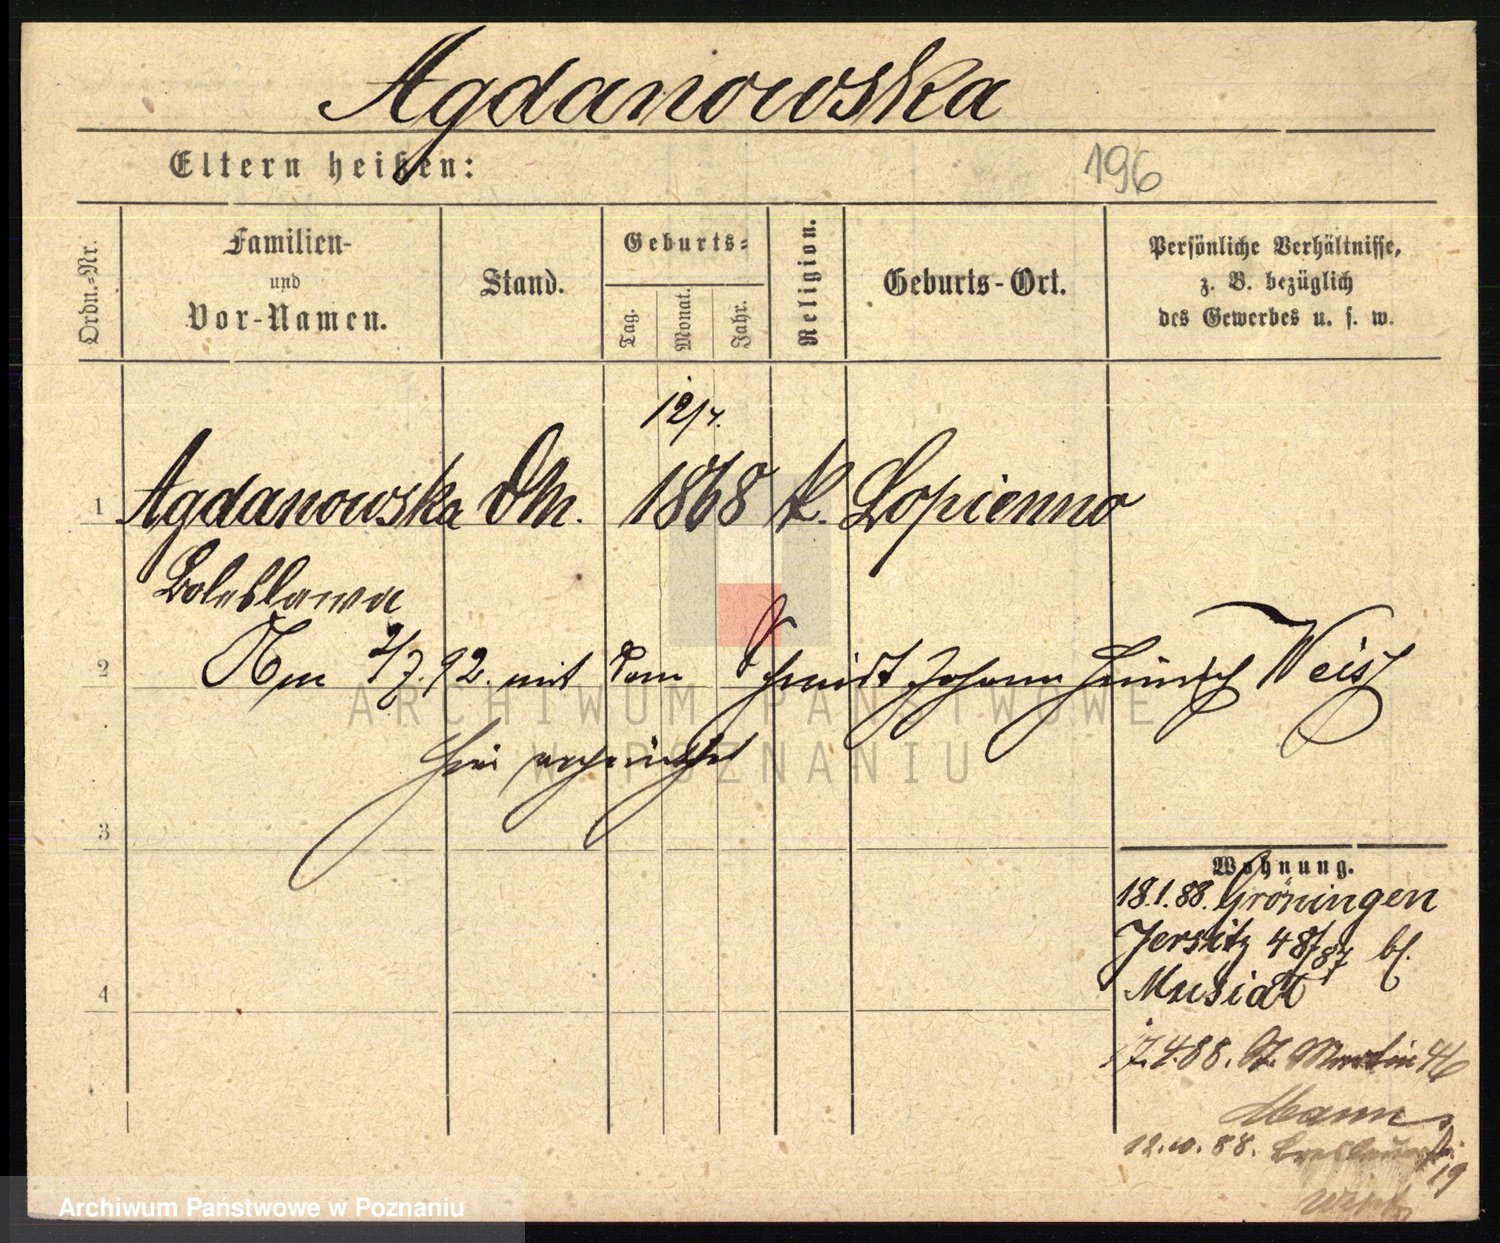 Agdanowska
Eltern heißen:
196
Ordn.-Nr.
Familien-
und
Vor-Namen.
Stand.
Geburts-
Tag.
Monat.
Jahr.
Religion.
Geburts-Ort.
Persönliche Verhältnisse,
z. B. bezüglich
des Gewerbes u. s. w.
12/7.
1 Agdanowska 1868 k. Lopienno
Boleslawa
2 Am 2/7.92. mit dem Schmidt Johann Heinrich Weiss
hier verheirathet
ARCHIWUM PAŃSTWOWE
W POZNANIU
3
Wohnung.
18.1.88. Gröningen
Jersitz 48/87 bf.
Musiat
4
17.4.88. St. Martin 46
Mann
12.10.88. Breslauerstr. 19
Archiwum Państwowe w Poznaniu